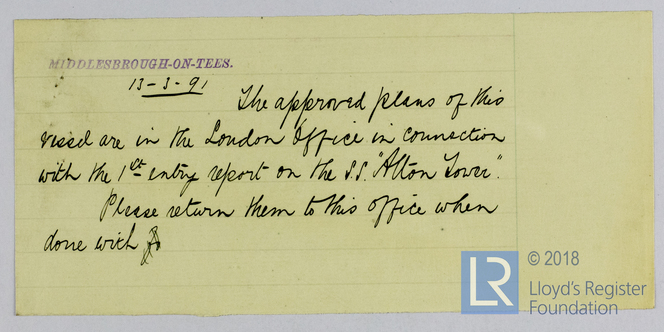 MIDDLESBROUGH-ON-TEES.
13-3-91
The approved plans of this
vessel are in the London Office in connection
with the 1st entry report on the S.S. "Alton Tower".
Please return them to this office when
done with
© 2018
LR
Lloyd's Register
Foundation